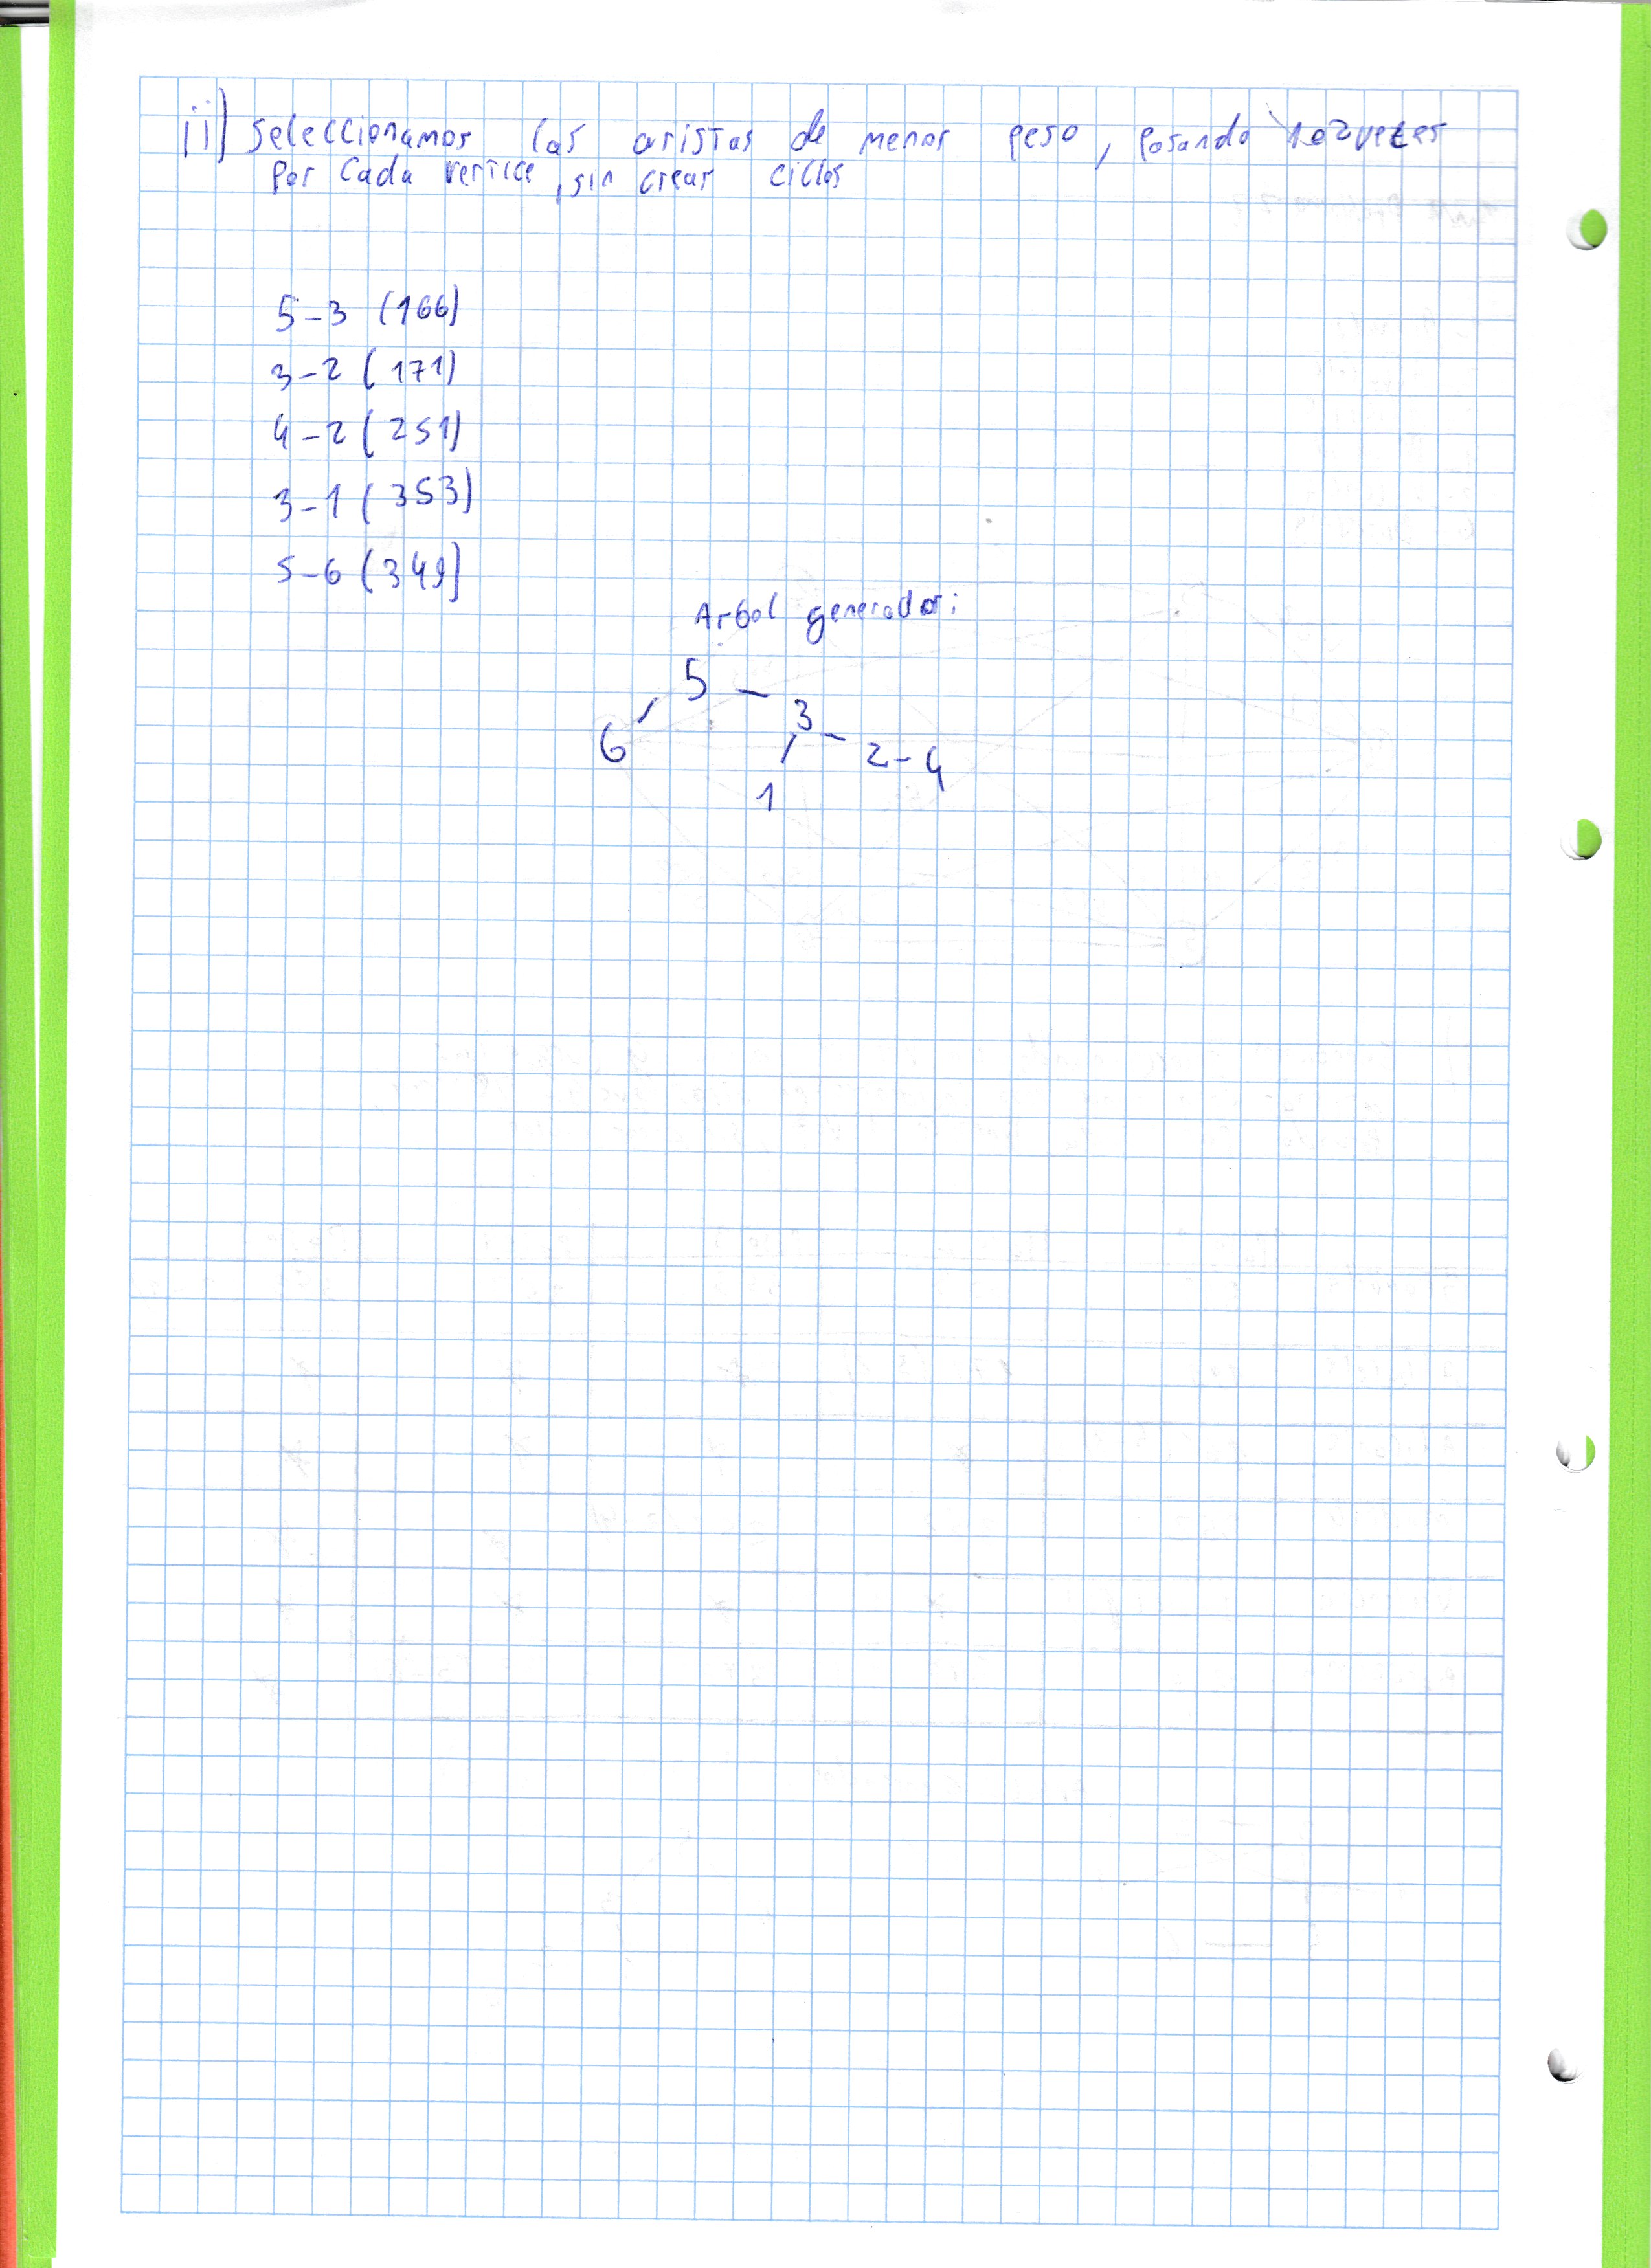 ii) Seleccionamos las aristas de menor peso, pasando 1 o 2 veces
por cada vertice, sin crear ciclos
5-3 (166)
3-2 (171)
4-2 (251)
3-1 (353)
5-6 (349)
Arbol generador:
5
3
6
2-4
1